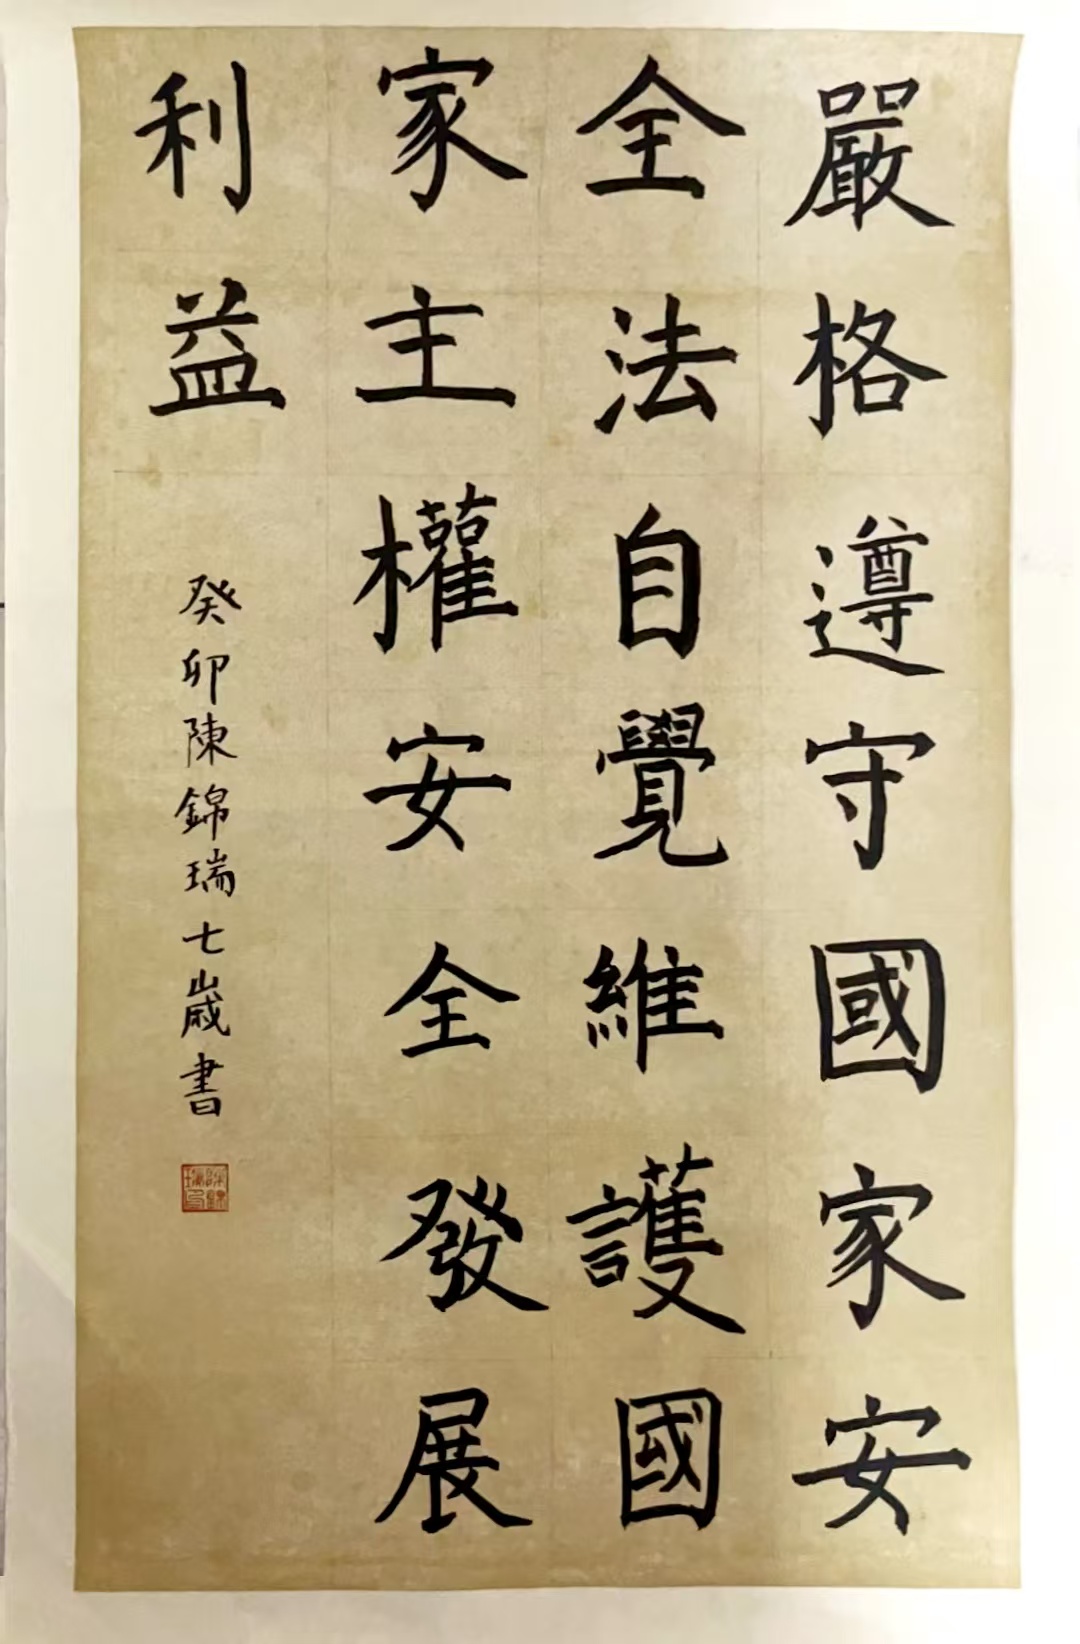 嚴格遵守國家安
全法自覺維護國
家主權安全發展
利益
癸卯陳錦瑞七歲書